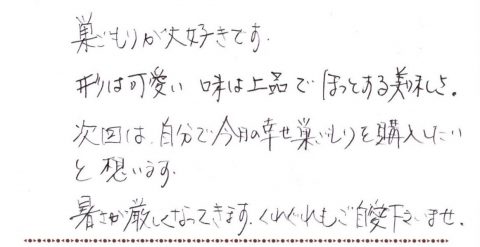 巣ごもりが大好きです.
形は可愛い 味は上品で ほっとする美味しさ。
次回は、自分で今月の幸せ巣ごもりを購入したい
と想います.
暑さが厳しくなってきます. くれぐれもご自愛下さいませ.